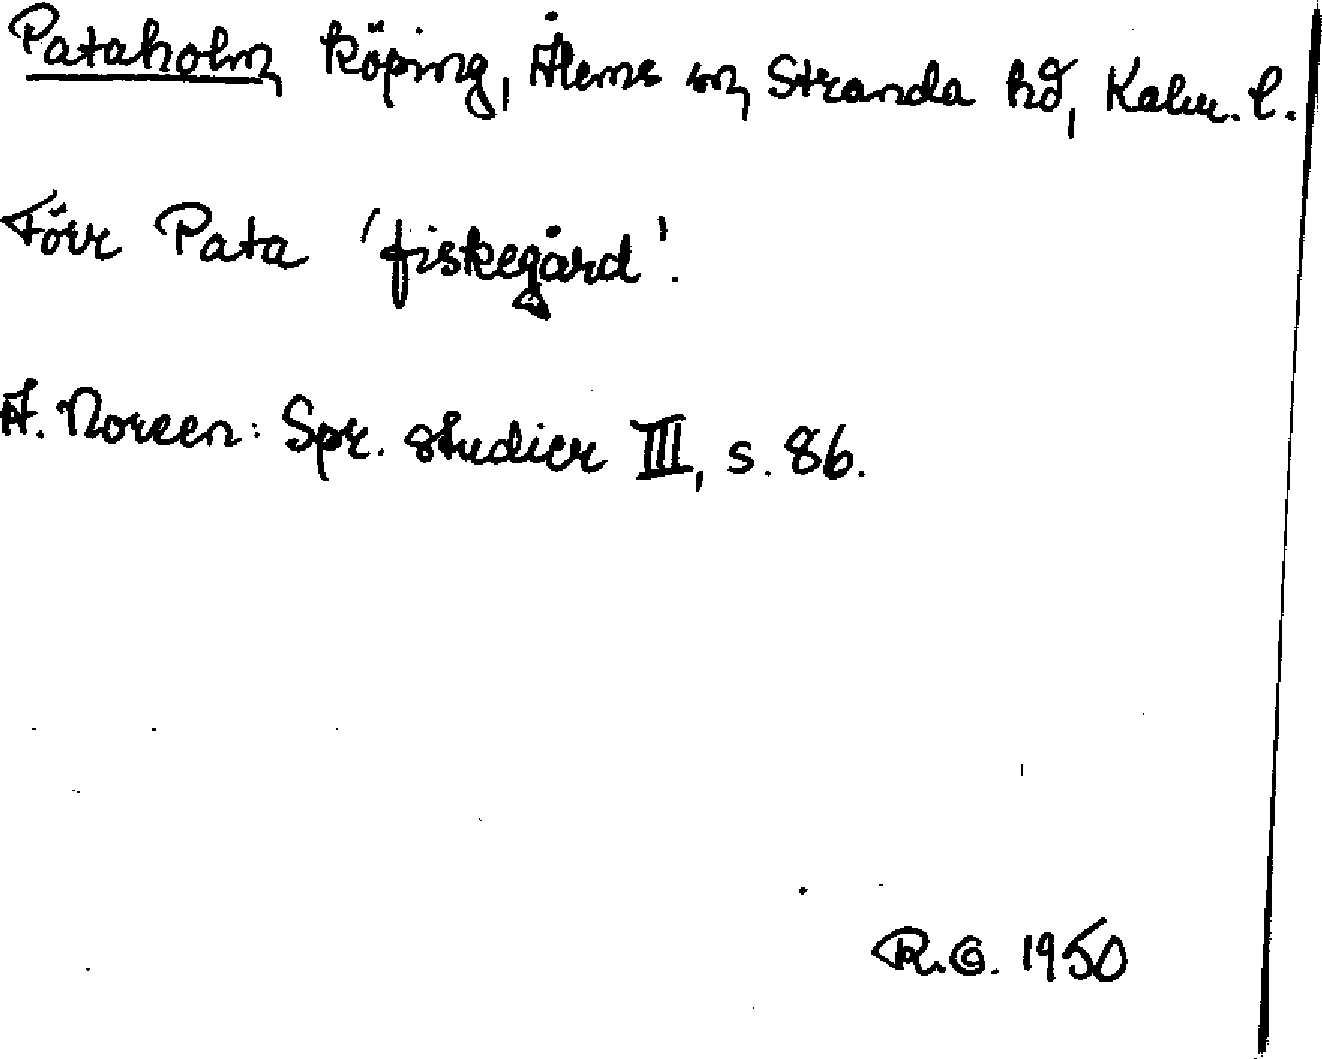 Pataholm köping, Ålems sn, Stranda hd, Kalm. l.
Förr Pata 'fiskegård'.
A. Noreen: Spr. studier III, s. 86.
R.G. 1950